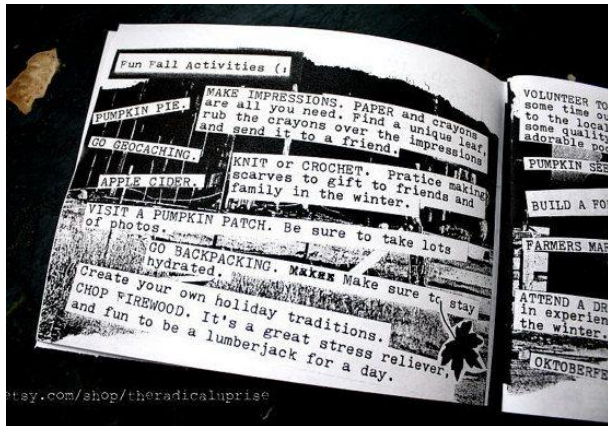 Fun Fall Activities (:
PUMPKIN PIE.
GO GEOCACHING.
APPLE CIDER.
MAKE IMPRESSIONS. PAPER and crayons
are all you need. Find a unique leaf,
rub the crayons over the impressions
and send it to a friend.
KNIT or CROCHET. Pratice making
scarves to gift to friends and
family in the winter.
VISIT A PUMPKIN PATCH. Be sure to take lots
of photos.
GO BACKPACKING. Makes Make sure to stay
hydrated.
Create your own holiday traditions.
CHOP FIREWOOD. It's a great stress reliever,
and fun to be a lumberjack for a day.
VOLUNTEER TO
some time ou
to the loca
some qualit
adorable po
PUMPKIN SEE
BUILD A FO
FARMERS MAR
ATTEND A DR
in experien
the winter.
OKTOBERFE
etsy.com/shop/theradicaluprise